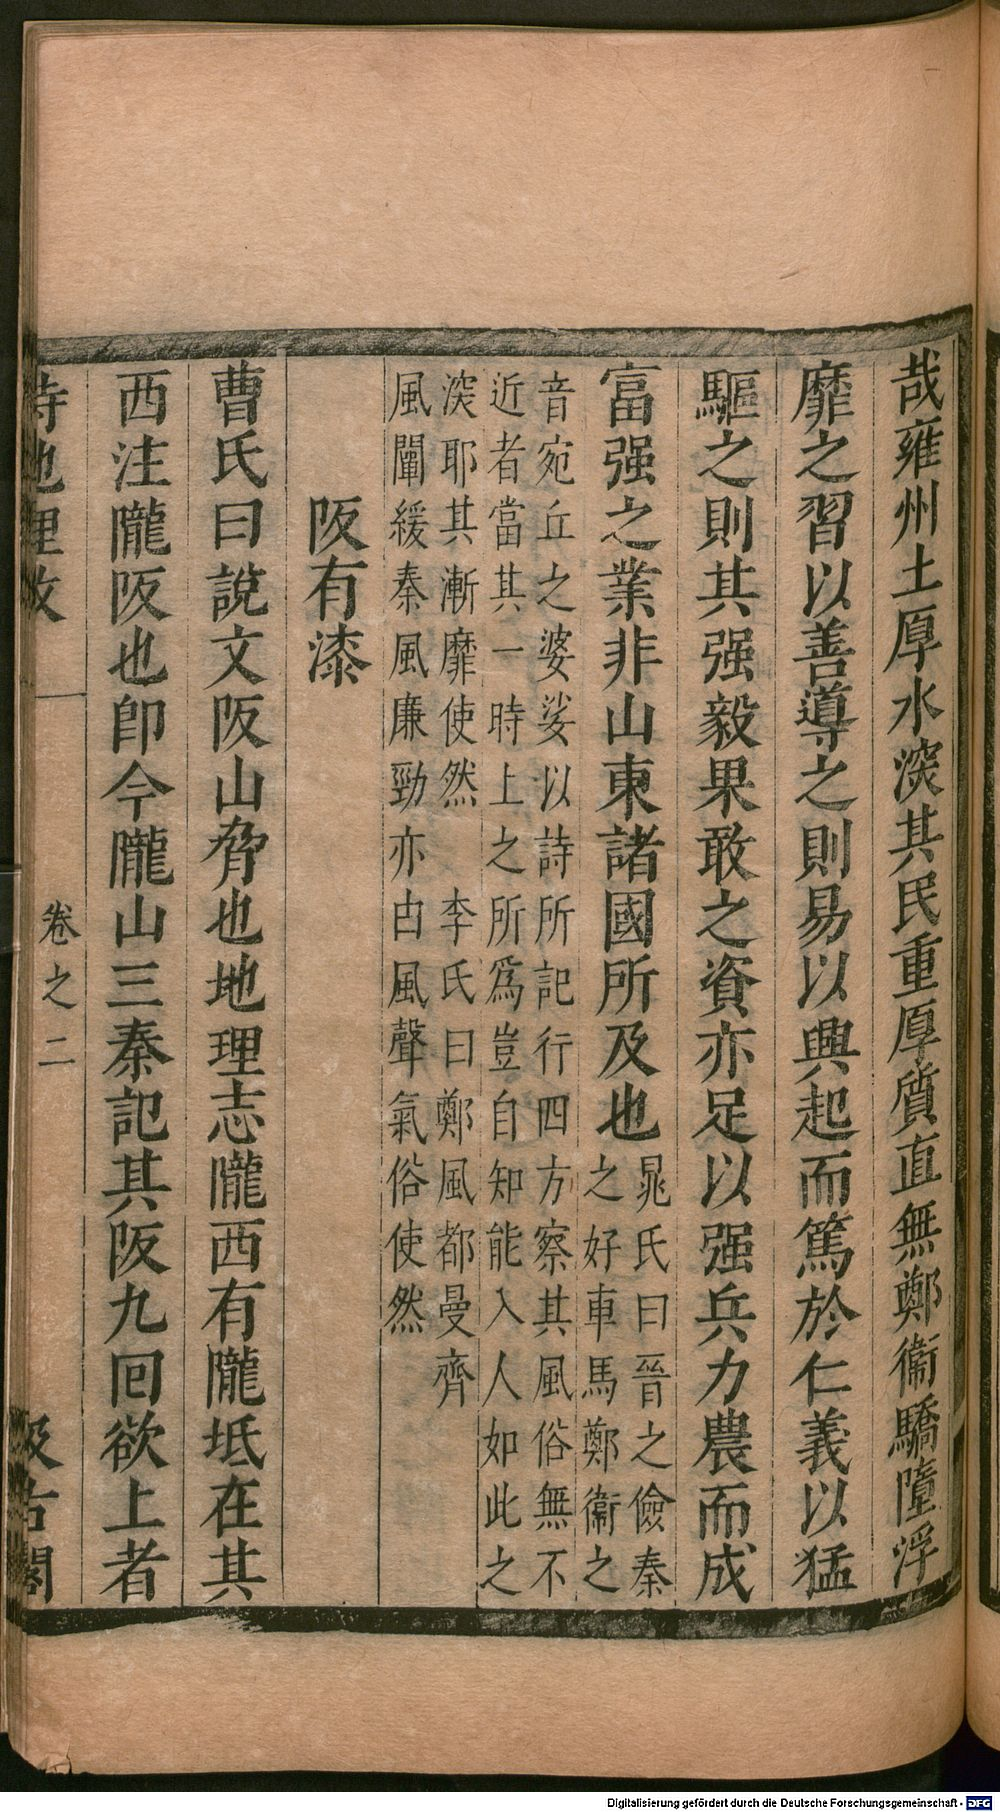 哉雍州土厚水㴱其民重厚質直無鄭衞驕墮浮
靡之習以善導之則易以興起而篤於仁義以猛
驅之則其强毅果敢之資亦足以强兵力農而成
富强之業非山東諸國所及也
晁氏曰晉之儉秦
之好車馬鄭衞之
音宛丘之婆娑以詩所記行四方察其風俗無不
近者當其一時上之所爲豈自知能入人如此之
㴱耶其漸靡使然 李氏曰鄭風都曼齊
風闡緩秦風廉勁亦古風聲氣俗使然
阪有漆
曹氏曰說文阪山脅也地理志隴西有隴坻在其
西注隴阪也卽今隴山三秦記其阪九回欲上者
詩地理攷
卷之二
汲古閣
Digitalisierung gefördert durch die Deutsche Forschungsgemeinschaft - DFG